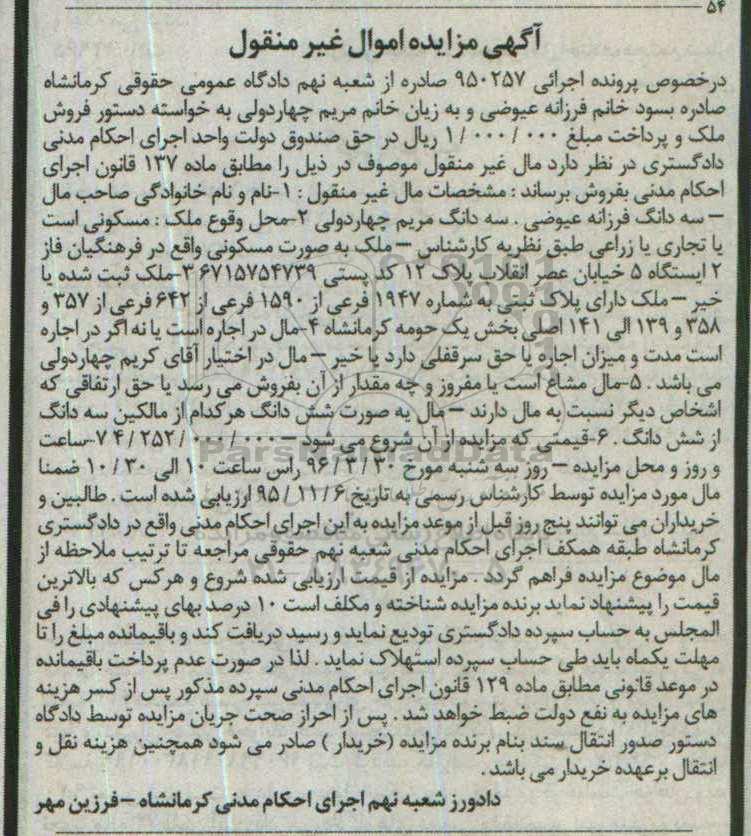 ۵۴
آگهی مزایده اموال غیر منقول
درخصوص پرونده اجرائی ۹۵۰۲۵۷ صادره از شعبه نهم دادگاه عمومی حقوقی کرمانشاه
صادره بسود خانم فرزانه عیوضی و به زیان خانم مریم چهاردولی به خواسته دستور فروش
ملک و پرداخت مبلغ ۰۰۰ / ۰۰۰ / ۱ ریال در حق صندوق دولت واحد اجرای احکام مدنی
دادگستری در نظر دارد مال غیر منقول موصوف در ذیل را مطابق ماده ۱۳۷ قانون اجرای
احکام مدنی بفروش برساند : مشخصات مال غیر منقول : ۱-نام و نام خانوادگی صاحب مال
– سه دانگ فرزانه عیوضی . سه دانگ مریم چهاردولی ۲-محل وقوع ملک : مسکونی است
یا تجاری یا زراعی طبق نظریه کارشناس – ملک به صورت مسکونی واقع در فرهنگیان فاز
۲ ایستگاه ۵ خیابان عصر انقلاب پلاک ۱۲ کد پستی ۶۷۱۵۷۵۴۷۳۹ ۳-ملک ثبت شده یا
خیر – ملک دارای پلاک ثبتی به شماره ۱۹۴۷ فرعی از ۱۵۹۰ فرعی از ۶۴۲ فرعی از ۳۵۷ و
۳۵۸ و ۱۳۹ الی ۱۴۱ اصلی بخش یک حومه کرمانشاه ۴-مال در اجاره است یا نه اگر در اجاره
است مدت و میزان اجاره یا حق سرقفلی دارد یا خیر – مال در اختیار آقای کریم چهاردولی
می باشد . ۵-مال مشاع است یا مفروز و چه مقدار از آن بفروش می رسد یا حق ارتفاقی که
اشخاص دیگر نسبت به مال دارند – مال به صورت شش دانگ هرکدام از مالکین سه دانگ
از شش دانگ . ۶-قیمتی که مزایده از آن شروع می شود – ۰۰۰ / ۰۰۰ / ۲۵۲ / ۴ ۷-ساعت
و روز و محل مزایده – روز سه شنبه مورخ ۳۰ / ۳ / ۹۶ راس ساعت ۱۰ الی ۳۰ / ۱۰ ضمنا
مال مورد مزایده توسط کارشناس رسمی به تاریخ ۶ / ۱۱ / ۹۵ ارزیابی شده است . طالبین و
خریداران می توانند پنج روز قبل از موعد مزایده به این اجرای احکام مدنی واقع در دادگستری
کرمانشاه طبقه همکف اجرای احکام مدنی شعبه نهم حقوقی مراجعه تا ترتیب ملاحظه از
مال موضوع مزایده فراهم گردد . مزایده از قیمت ارزیابی شده شروع و هرکس که بالاترین
قیمت را پیشنهاد نماید برنده مزایده شناخته و مکلف است ۱۰ درصد بهای پیشنهادی را فی
المجلس به حساب سپرده دادگستری تودیع نماید و رسید دریافت کند و باقیمانده مبلغ را تا
مهلت یکماه باید طی حساب سپرده استهلاک نماید . لذا در صورت عدم پرداخت باقیمانده
در موعد قانونی مطابق ماده ۱۲۹ قانون اجرای احکام مدنی سپرده مذکور پس از کسر هزینه
های مزایده به نفع دولت ضبط خواهد شد . پس از احراز صحت جریان مزایده توسط دادگاه
دستور صدور انتقال سند بنام برنده مزایده (خریدار ) صادر می شود همچنین هزینه نقل و
انتقال برعهده خریدار می باشد .
دادورز شعبه نهم اجرای احکام مدنی کرمانشاه – فرزین مهر
ParsNamadData